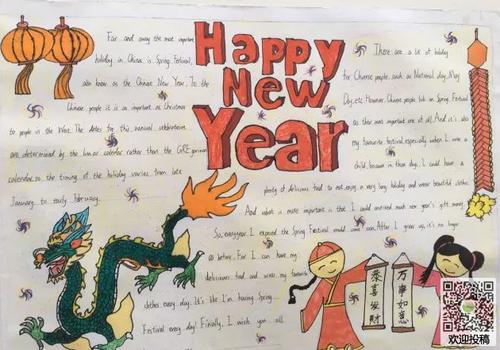 Happy
New
Year
Far and away the most important
holiday in China is Spring Festival,
also known as the Chinese New Year. To the
Chinese people it is as important as Christmas
to people in the West. The dates for this annual celebration
are determined by the lunar calendar rather than the GREgorian
calendar, so the timing of the holiday varies from late
January to early February.
There are a lot of holiday
for Chinese people, such as National day, May
Day, etc. However, Chinese people look on Spring Festival
as their most important one of all. And it's also
my favourite festival, especially when I were a
child. Because in those day, I could have a
plenty of delicious food to eat, enjoy a very long holiday and wear beautiful clothes.
And what is more important is that I could received much new year's gift money.
So, everyyear I expected the Spring Festival would come soon. After I grew up, it's no longer
so better. For I can have my
delicious food and wear my favourite
clothes every day. It's like I'm having Spring
Festival every day. Finally, I wish you all
恭喜發財
万事如意
欢迎投稿